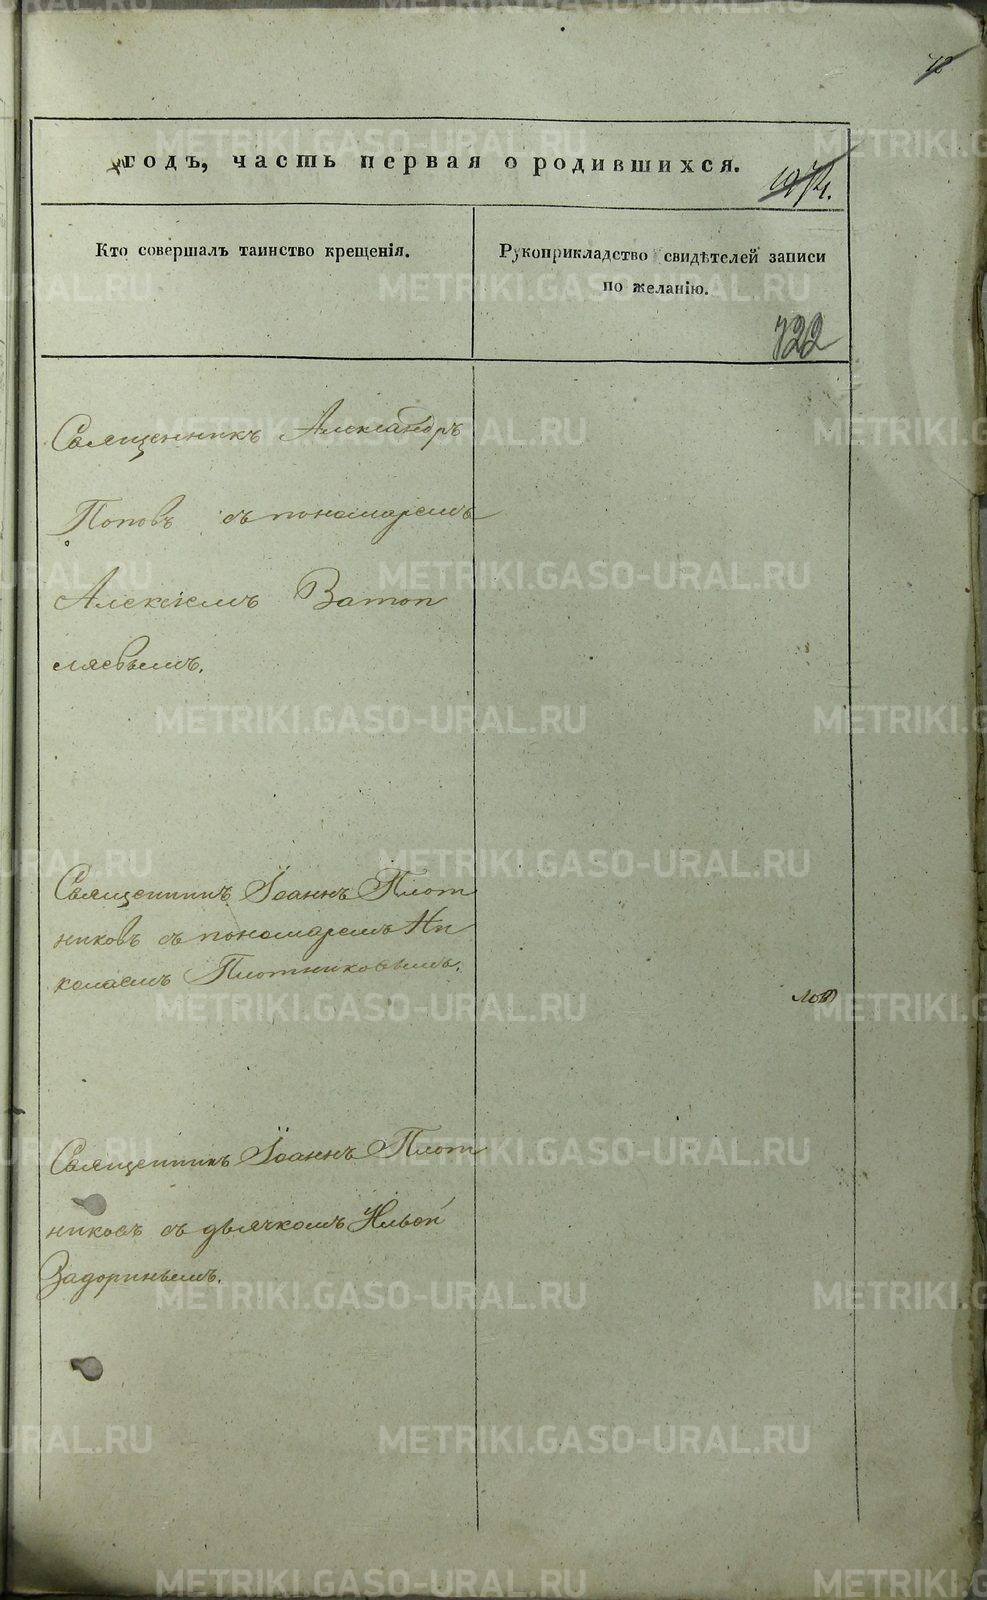 годъ, часть первая о родившихся.
Кто совершалъ таинство крещенія.
Рукоприкладство свидѣтелей записи
по желанію.
722
Священникъ Александръ
Поповъ съ пономаремъ
Алексіемъ Ватоп
лаевымъ.
Священникъ Іоаннъ Плот
никовъ съ пономаремъ Ни
колаемъ Плотниковымъ.
Священникъ Іоаннъ Плот
никовъ съ дьячкомъ Ильей
Задоринымъ.
METRIKI.GASO-URAL.RU